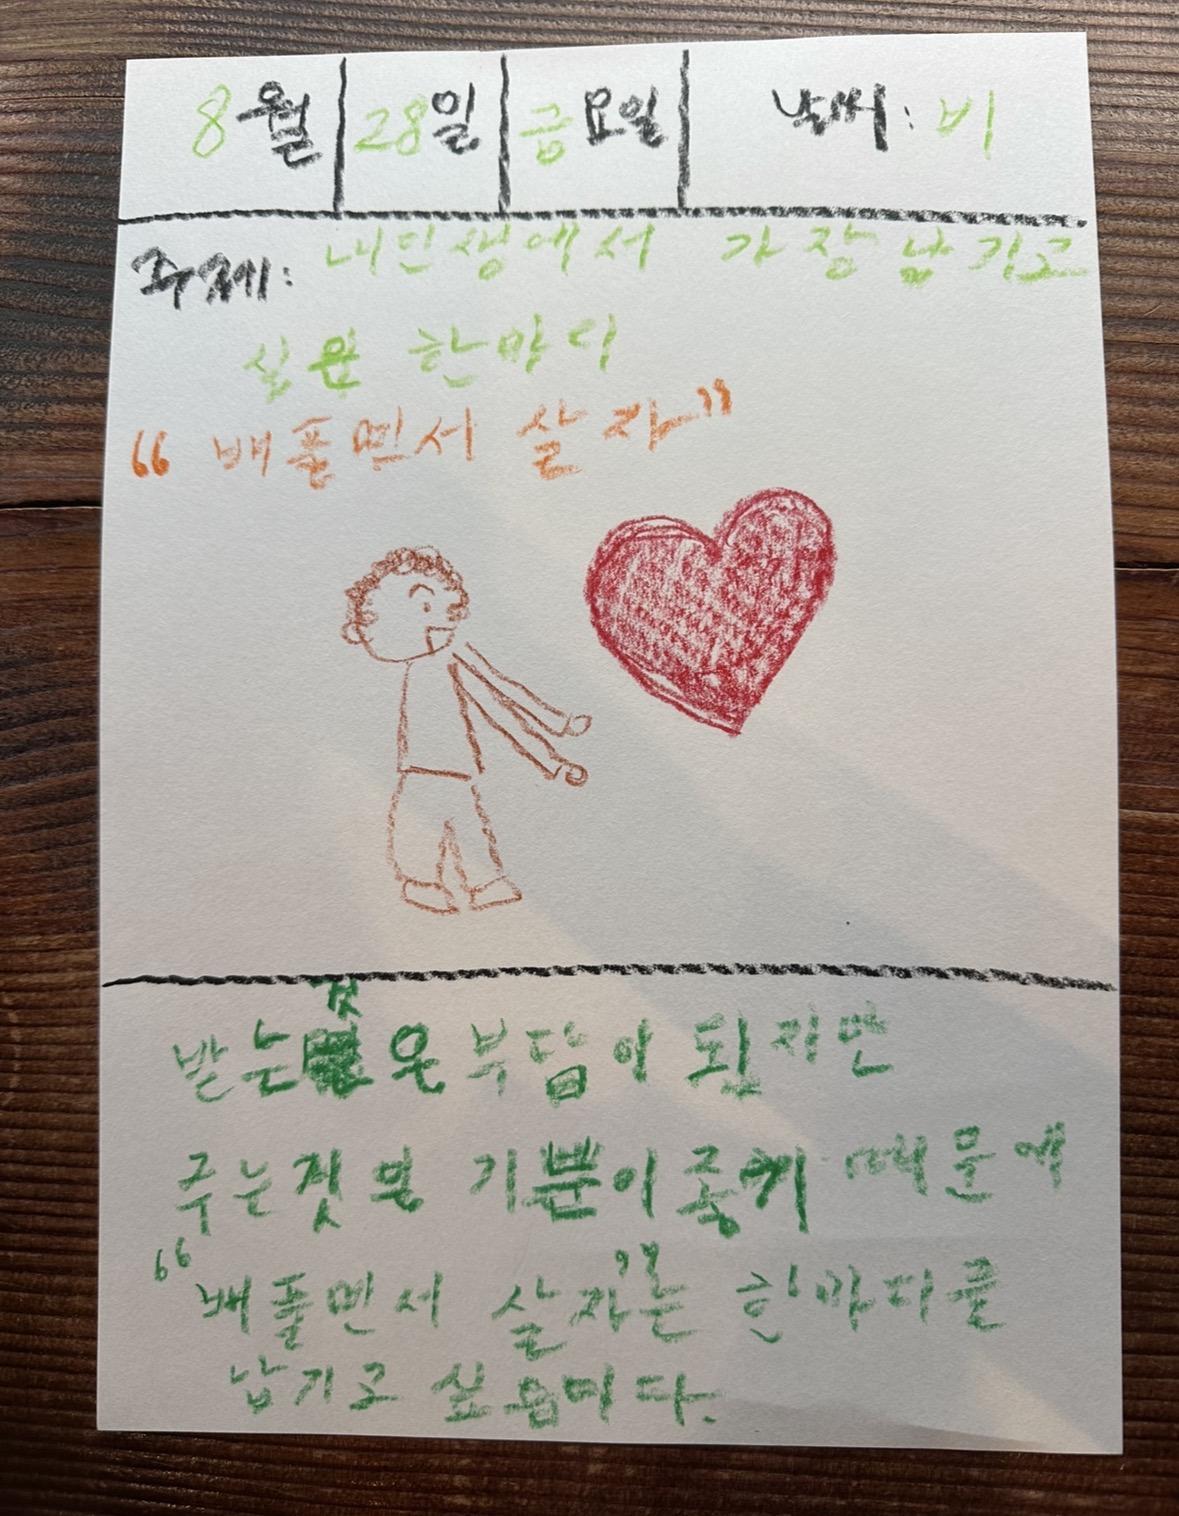 8월 28일 금요일 날씨: 비
주제: 내인생에서 가장 남기고
싶은 한마디
“배풀면서 살자”
받는것은 부담이 되지만
주는것은 기쁨이 좋기 때문에
“배풀면서 살자”는 한마디를
남기고 싶습니다.